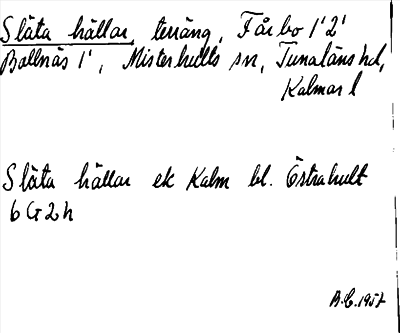 Släta hällar, terräng, Fårbo 1'2'
Ballnäs 1', Misterhults sn, Tunaläns hd,
Kalmar l
Släta hällar ek Kalm bl. Östrahult
6 G 2 h
A.C. 1957